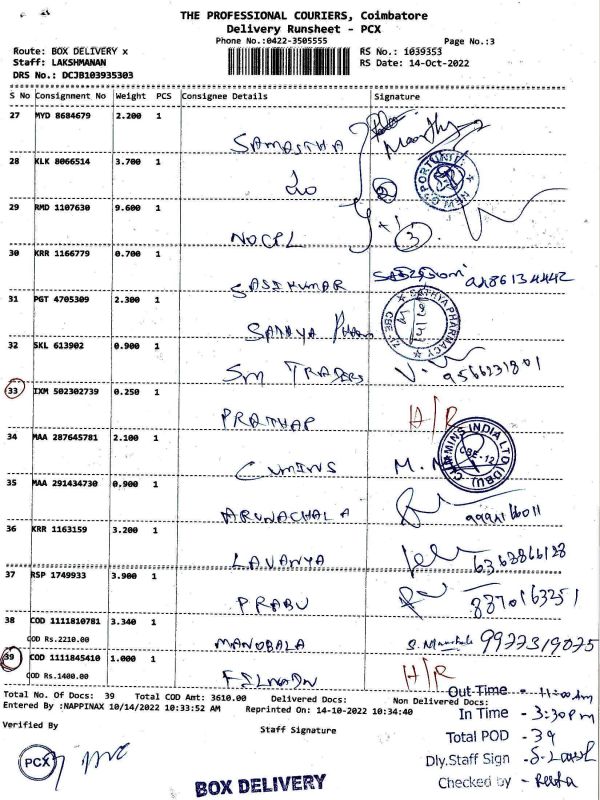 THE PROFESSIONAL COURIERS, Coimbatore
Delivery Runsheet - PCX
Phone No.:0422-3505555
Page No.:3
Route: BOX DELIVERY x
RS No.: 1039353
Staff: LAKSHMANAN
RS Date: 14-Oct-2022
DRS No.: DCJB103935303
S No Consignment No Weight PCS Consignee Details Signature
27 MYD 8684679 2.200 1
SAMASTHA
28 KLK 8066514 3.700 1
2
29 RMD 1107630 9.600 1
NOCPL 3
30 KRR 1166779 0.700 1
SASIKUMAR
31 PGT 4705309 2.300 1
SATHYA PHARMACY
CBE-12
32 SKL 613902 0.900 1
SM TRADERS 9566231801
33 IXM 502302739 0.250 1
PRATHAP H/R
34 MAA 287645781 2.100 1
CUMINS M.
CUMMINS INDIA LTD (DBU)
CBE-12
35 MAA 291434730 0.900 1
ARUNACHALA
36 KRR 1163159 3.200 1
LAVANYA
37 RSP 1749933 3.900 1
PRABU 8870163251
38 COD 1111810781 3.340 1
COD Rs.2210.00
MANOBALA
39 COD 1111845410 1.000 1
COD Rs.1400.00
H/R
Total No. Of Docs: 39 Total COD Amt: 3610.00 Delivered Docs: Non Delivered Docs:
Entered By :NAPPINAX 10/14/2022 10:33:52 AM Reprinted On: 14-10-2022 10:34:40
Out Time - 11:00 Am
In Time - 3:30 pm
Verified By
Staff Signature
Total POD - 39
Dly.Staff Sign
Checked by
PCX
BOX DELIVERY